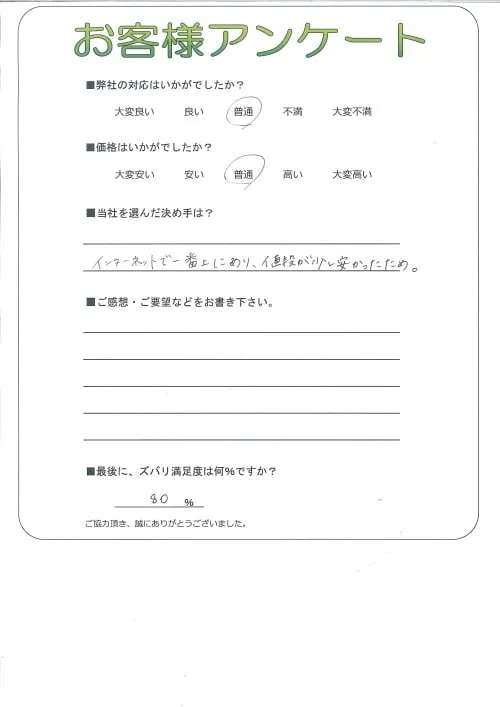 お客様アンケート
■弊社の対応はいかがでしたか？
大変良い 良い 普通 不満 大変不満
■価格はいかがでしたか？
大変安い 安い 普通 高い 大変高い
■当社を選んだ決め手は？
インターネットで一番上にあり、値段が少し安かったため。
■ご感想・ご要望などをお書き下さい。
■最後に、ズバリ満足度は何％ですか？
80 %
ご協力頂き、誠にありがとうございました。